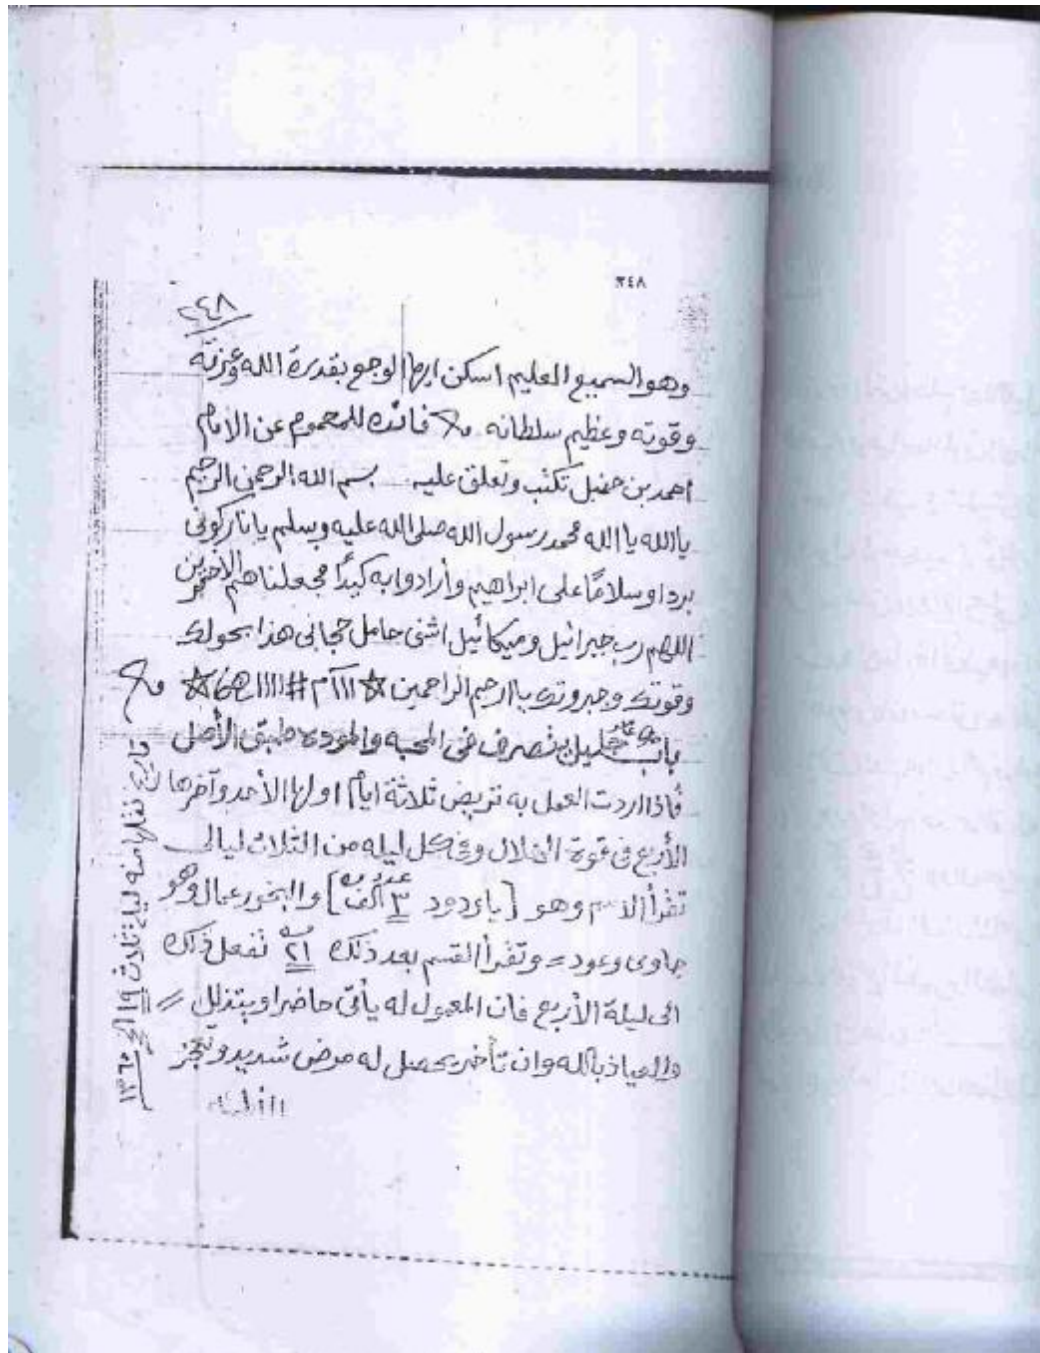 ٣٤٨
٣٤٨
وهو السميع العليم اسكن ايها الوجع بقدرة الله وعزته
وقوته وعظيم سلطانه فائده للمحموم عن الامام
احمد بن حنبل تكتب وتعلق عليه بسم الله الرحمن الرحيم
يا الله يا الله محمد رسول الله صلى الله عليه وسلم يا نار كونى
بردا وسلامًا على ابراهيم وأرادوا به كيدًا فجعلناهم الاخسرين
اللهم رب جبرائيل وميكائيل اشفى حامل حجابى هذا بحولك
وقوتك وجبروتك يا ارحم الراحمين ☆ ااا آم # اااا ☆
باب جليل يتصرف فى المحبه والموده طبق الأصل
فأذا اردت العمل به تريض ثلاثة ايام اولها الأحد وآخرها
الأربع فى قوة الهلال وفى كل ليله من الثلاث ليالى
تقرأ الاسم وهو [يا ودود عدد ٣ الف] والبخور عمال وهو
جاوى وعود = وتقرأ القسم بعد ذلك ٢١ تفعل ذلك
الى ليلة الأربع فان المعمول له يأتى حاضرا ويتذلل =
والعياذ بالله وان تأخر يحصل له مرض شديد وتعجز
الأطباء
تاريخ نقلها منه ليلة ثلاث ١٩ ١٣٦٥